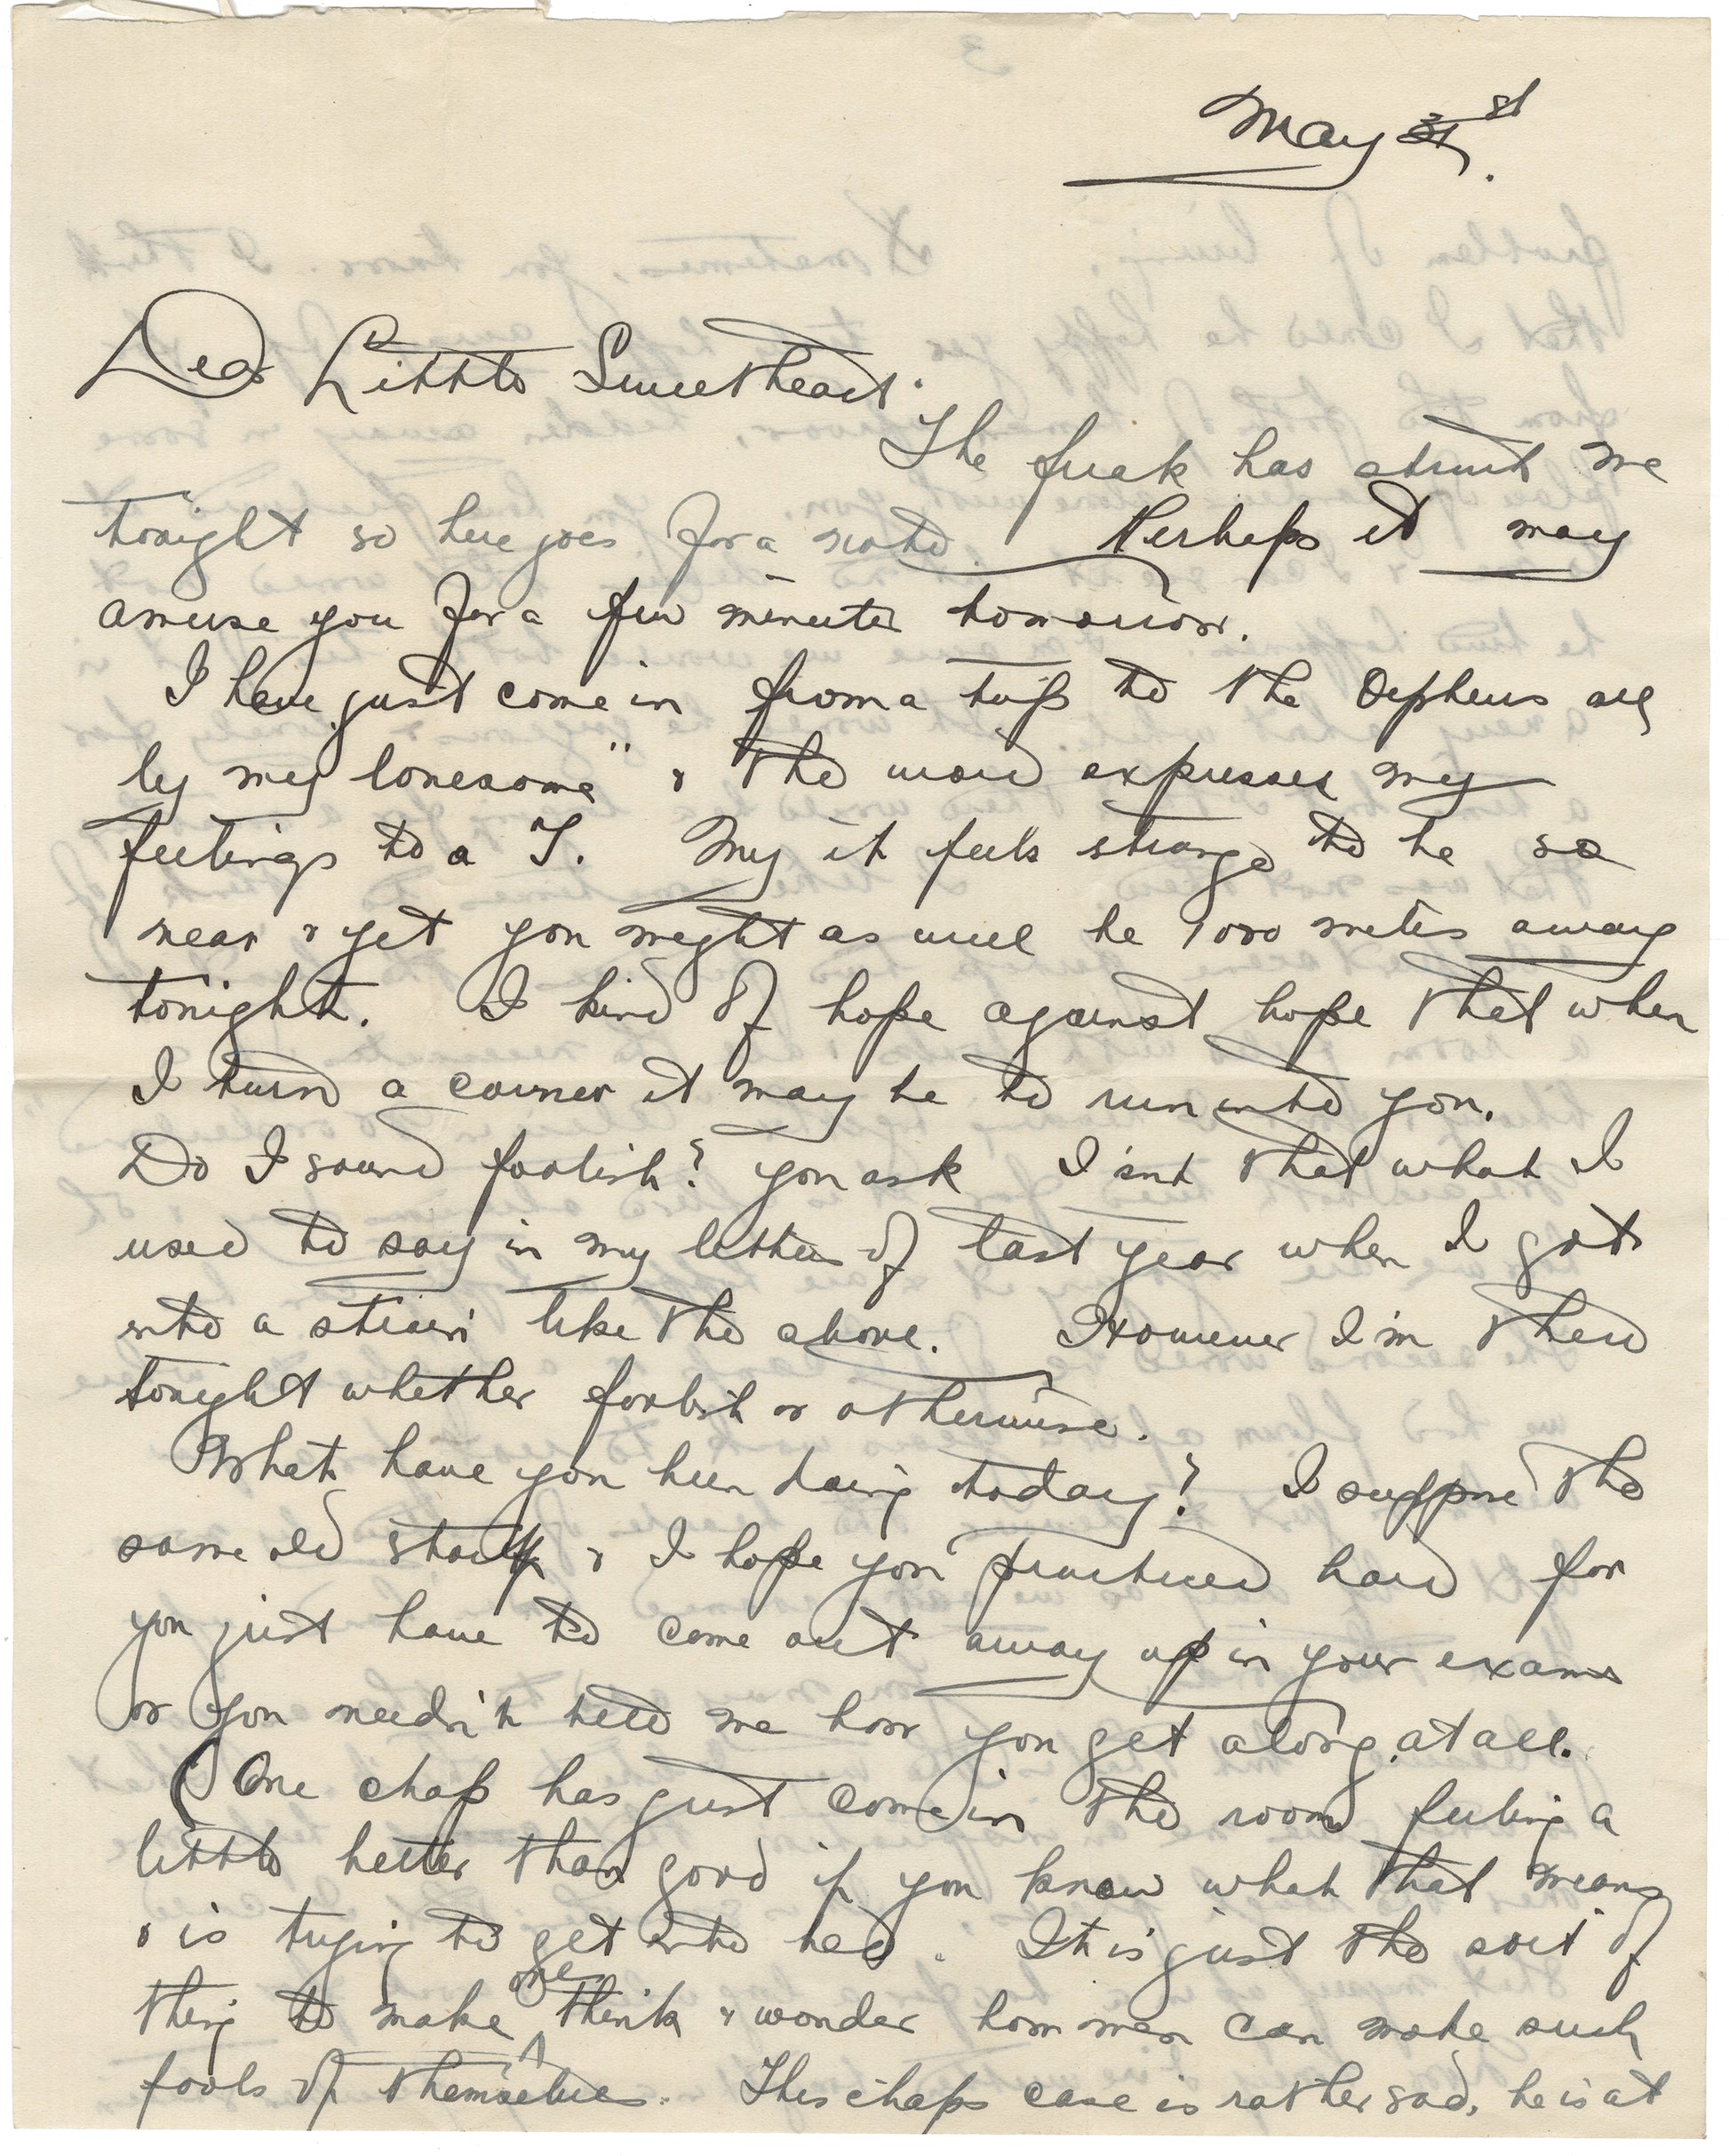 May 31st.
Dear Little Sweetheart.
The freak has struck me
tonight so here goes for a note. Perhaps it may
amuse you for a few minutes tomorrow.
I have just come in from a trip to the Orpheus all
by my lonesome" & the word expresses my
feelings to a T. My it feels strange to be so
near & yet you might as well be 1000 miles away
tonight. I kind of hope against hope that when
I turn a corner it may be to run into you.
Do I sound foolish? you ask Isnt that what I
used to say in my letters of last year when I got
into a strain like the above. However I'm there
tonight whether foolish or otherwise.
What have you been doing today? I suppose the
same old stuff & I hope you practiced hard for
you just have to come out away up in your exams
or you needn't tell me how you get along at all.
One chap has just come in the room feeling a
little better than good if you know what that means
& is trying to get into bed. It is just the sort of
thing to make one think & wonder how men can make such
fools of themselves. This chaps case is rather sad, he is at